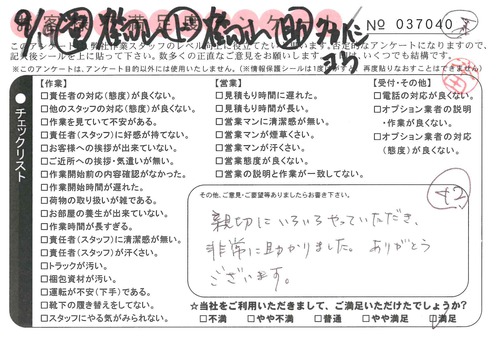 No 037040
このアンケートは弊社作業スタッフのレベル向上に役立てたい
記入後シールを上に貼って下さい。数多くの正直なご意見をお願いします。いくつでも結構です。
※このアンケートは、アンケート目的以外には一切使用いたしません。
チェックリスト
【作業】
□責任者の対応(態度)が良くない。
□他のスタッフの対応(態度)が良くない。
□作業を見ていて不安がある。
□責任者(スタッフ)に好感が持てない。
□お客様への挨拶が出来ていない。
□ご近所への挨拶・気遣いが無い。
□作業開始前の内容確認がなかった。
□作業開始時間が遅れた。
□荷物の取り扱いが雑である。
□お部屋の養生が出来ていない。
□作業時間が長すぎる。
□責任者(スタッフ)に清潔感が無い。
□責任者(スタッフ)が汗くさい。
□トラックが汚い。
□梱包資材が汚い。
□運転が不安(下手)である。
□靴下の履き替えをしてない。
□スタッフにやる気がみられない。
【営業】
□見積もり時間に遅れた。
□見積もり時間が長い。
□営業マンに清潔感が無い。
□営業マンが煙草くさい。
□営業マンが汗くさい。
□営業態度が良くない。
□営業の説明と作業が一致してない。
【受付・その他】
□電話の対応が良くない。
□オプション業者の説明
・作業が良くない。
□オプション業者の対応
(態度)が良くない。
42
その他、ご意見・ご要望等ありましたらお書き下さい。
親切にいろいろやっていただき、
非常に助かりました。ありがとう
ございます。
☆当社をご利用いただきまして、ご満足いただけたでしょうか?
□不満 □やや不満 □普通 □やや満足 ☑満足